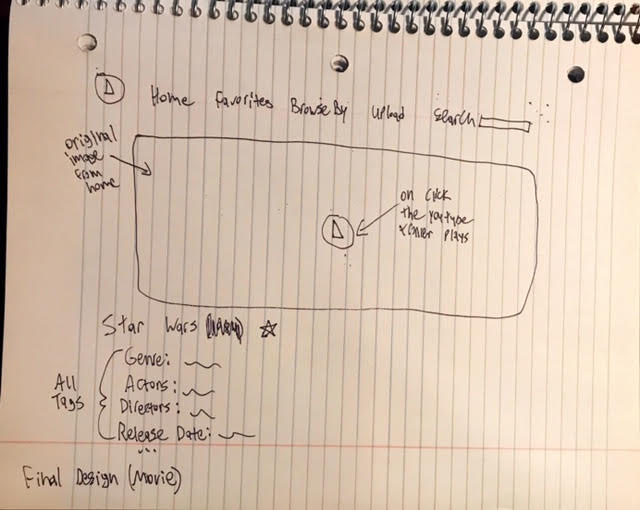 Home Favorites Browse By Upload Search
original
image
from
home
on click
the
plays
Star Wars
Genre:
Actors:
Directors:
Release Date:
...
All
Tags
Final Design (Movie)